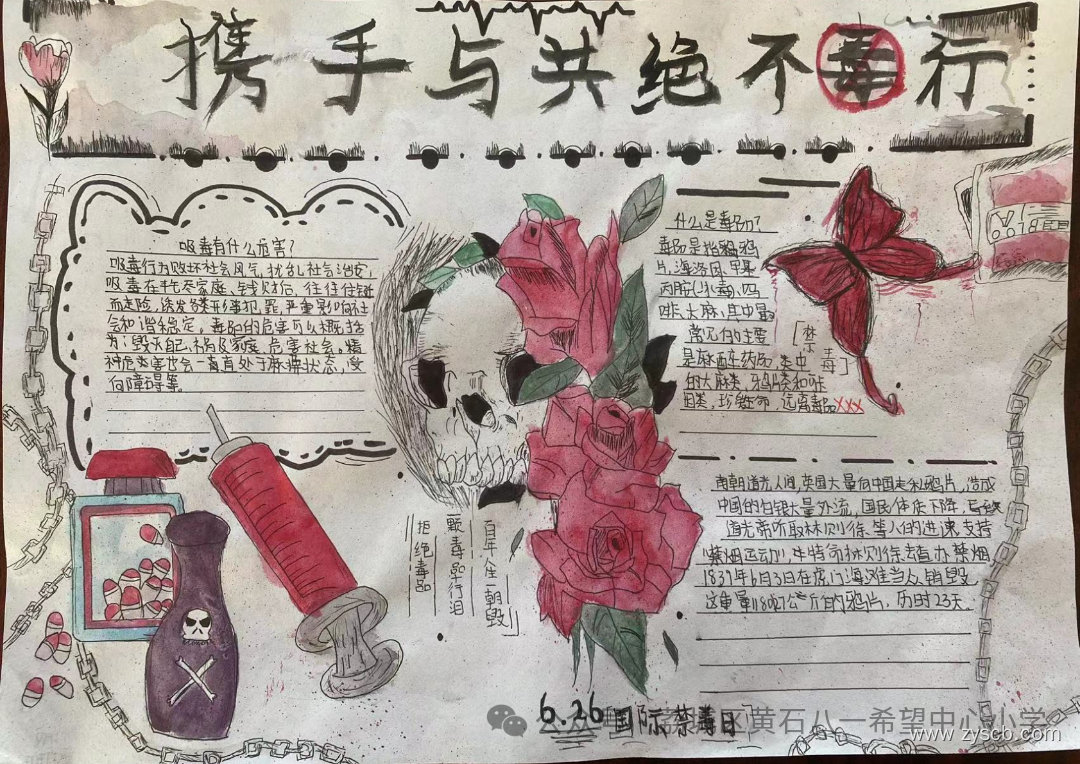 携手与共绝不毒行
吸毒有什么危害?
吸毒行为败坏社会风气,扰乱社会治安,
吸毒在耗尽家庭、钱财后,往往任链
而走险,诱发各类刑事犯罪,严重影响社
会和谐稳定,毒品的危害可以概括
为:毁灭自己、祸及家庭、危害社会。精
神危类害也会一直直处于麻痹状态,受
何障碍等。
什么是毒品?
毒品是指鸦鸦
片,海洛因,甲基
丙胺(冰毒)、四
啡、大麻,其中最
常见的主要
是麻醉药品类中
的大麻类,鸦片类和
因类,珍爱生命,远离毒品XXX
[禁
毒]
道光人间,英国大量向中国走私鸦片,造成
中国的白银大量外流,国民体质下降,
道光帝听取林则徐等人的进谏支持
禁烟运动,林则徐查办禁烟
1839年6月3日在虎门海滩当众销毁
公斤的鸦片,历时23天.
百年人生一朝毁
颗毒品一行泪
拒绝毒品
6.26国际禁毒日
黄石八一希望中心小学
www.zyscb.com